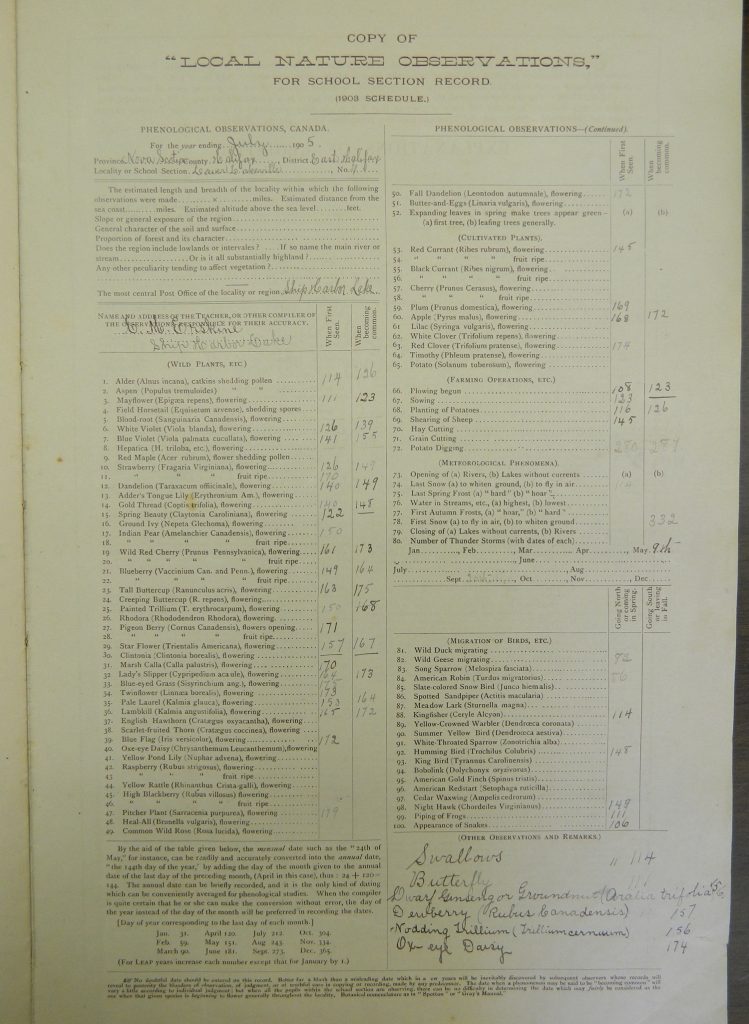 COPY OF
"LOCAL NATURE OBSERVATIONS,"
FOR SCHOOL SECTION RECORD.
(1903 SCHEDULE.)
PHENOLOGICAL OBSERVATIONS, CANADA.
For the year ending July 1905.
Province Nova Scotia County Halifax District East Halifax
Locality or School Section, No.
The estimated length and breadth of the locality within which the following
observations were made × miles. Estimated distance from the
sea coast miles. Estimated altitude above the sea level feet.
Slope or general exposure of the region
General character of the soil and surface
Proportion of forest and its character
Does the region include lowlands or intervales? If so name the main river or
stream Or is it all substantially highland?
Any other peculiarity tending to affect vegetation?
The most central Post Office of the locality or region Ship Harbor Lake
NAME AND ADDRESS OF THE TEACHER, OR OTHER COMPILER OF
THE OBSERVATIONS, RESPONSIBLE FOR THEIR ACCURACY.
M. Erskine
Ship Harbor Lake
When First Seen.
When becoming common.
(WILD PLANTS, ETC)
1. Alder (Alnus incana), catkins shedding pollen 114 126
2. Aspen (Populus tremuloides) " "
3. Mayflower (Epigæa repens), flowering 111 123
4. Field Horsetail (Equisetum arvense), shedding spores
5. Blood-root (Sanguinaria Canadensis), flowering
6. White Violet (Viola blanda), flowering 126 139
7. Blue Violet (Viola palmata cucullata), flowering 141 155
8. Hepatica (H. triloba, etc.), flowering
9. Red Maple (Acer rubrum), flower shedding pollen
10. Strawberry (Fragaria Virginiana), flowering 126
11. " " fruit ripe 170
12. Dandelion (Taraxacum officinale), flowering 140 149
13. Adder's Tongue Lily (Erythronium Am.), flowering
14. Gold Thread (Coptis trifolia), flowering 145
15. Spring Beauty (Claytonia Caroliniana), flowering 122
16. Ground Ivy (Nepeta Glechoma), flowering
17. Indian Pear (Amelanchier Canadensis), flowering 150
18. " " " fruit ripe
19. Wild Red Cherry (Prunus Pennsylvanica), flowering 161 173
20. " " " " fruit ripe
21. Blueberry (Vaccinium Can. and Penn.), flowering 149 164
22. " " " fruit ripe
23. Tall Buttercup (Ranunculus acris), flowering 163 175
24. Creeping Buttercup (R. repens), flowering
25. Painted Trillium (T. erythrocarpum), flowering 150 168
26. Rhodora (Rhododendron Rhodora), flowering
27. Pigeon Berry (Cornus Canadensis), flowers opening 171
28. " " " fruit ripe
29. Star Flower (Trientalis Americana), flowering 157 167
30. Clintonia (Clintonia borealis), flowering
31. Marsh Calla (Calla palustris), flowering 170
32. Lady's Slipper (Cypripedium acaule), flowering 164 173
33. Blue-eyed Grass (Sisyrinchium ang.), flowering
34. Twinflower (Linnæa borealis), flowering 173
35. Pale Laurel (Kalmia glauca), flowering 153 164
36. Lambkill (Kalmia angustifolia), flowering 165 172
37. English Hawthorn (Cratægus oxyacantha), flowering
38. Scarlet-fruited Thorn (Cratægus coccinea), flowering
39. Blue Flag (Iris versicolor), flowering 172
40. Oxe-eye Daisy (Chrysanthemum Leucanthemum), flowering
41. Yellow Pond Lily (Nuphar advena), flowering
42. Raspberry (Rubus strigosus), flowering
43. " " fruit ripe
44. Yellow Rattle (Rhinanthus Crista-galli), flowering
45. High Blackberry (Rubus villosus) flowering
46. " " " fruit ripe
47. Pitcher Plant (Sarracenia purpurea), flowering 179
48. Heal-All (Brunella vulgaris), flowering
49. Common Wild Rose (Rosa lucida), flowering
By the aid of the table given below, the menstrual date such as the "24th of
May," for instance, can be readily and accurately converted into the annual date,
"the 144th day of the year," by adding the day of the month given to the annual
date of the last day of the preceding month, (April in this case), thus: 24 + 120 =
144. The annual date can be briefly recorded, and it is the only kind of dating
which can be conveniently averaged for phenological studies. When the compiler
is quite certain that he or she can make the conversion without error, the day of
the year instead of the day of the month will be preferred in recording the dates.
[Day of year corresponding to the last day of each month.]
Jan. 31. April 120. July 212. Oct. 304.
Feb. 59. May 151. Aug 243. Nov. 334.
March 90. June 181. Sept. 273. Dec. 365.
(For LEAP years increase each number except that for January by 1.)
PHENOLOGICAL OBSERVATIONS—(Continued).
When First Seen.
When becoming common.
50. Fall Dandelion (Leontodon autumnale), flowering 172
51. Butter-and-Eggs (Linaria vulgaris), flowering
52. Expanding leaves in spring make trees appear green (a) (b)
(a) first tree, (b) leafing trees generally.
(CULTIVATED PLANTS).
53. Red Currant (Ribes rubrum), flowering 145
54. " " " fruit ripe
55. Black Currant (Ribes nigrum), flowering
56. " " " fruit ripe
57. Cherry (Prunus Cerasus), flowering
58. " " " fruit ripe
59. Plum (Prunus domestica), flowering 169
60. Apple (Pyrus malus), flowering 168 172
61. Lilac (Syringa vulgaris), flowering
62. White Clover (Trifolium repens), flowering
63. Red Clover (Trifolium pratense), flowering 174
64. Timothy (Phleum pratense), flowering
65. Potato (Solanum tuberosum), flowering
(FARMING OPERATIONS, ETC.)
66. Plowing begun 108 123
67. Sowing 123
68. Planting of Potatoes 116 126
69. Shearing of Sheep 145
70. Hay Cutting
71. Grain Cutting
72. Potato Digging 280 287
(METEOROLOGICAL PHENOMENA).
73. Opening of (a) Rivers, (b) Lakes without currents (a) (b)
74. Last Snow (a) to whiten ground, (b) to fly in air
75. Last Spring Frost (a) "hard" (b) "hoar"
76. Water in Streams, etc., (a) highest, (b) lowest
77. First Autumn Frosts, (a) "hoar," (b) "hard"
78. First Snow (a) to fly in air, (b) to whiten ground 332
79. Closing of (a) Lakes without currents, (b) Rivers
80. Number of Thunder Storms (with dates of each)
Jan , Feb. , Mar. , Apr. , May 9th
, June
July , Aug
, Sept , Oct , Nov. , Dec
Going North or coming in Spring.
Going South or leaving in Fall.
(MIGRATION OF BIRDS, ETC.)
81. Wild Duck migrating
82. Wild Geese migrating 92
83. Song Sparrow (Melospiza fasciata)
84. American Robin (Turdus migratorius) 86
85. Slate-colored Snow Bird (Junco hiemalis)
86. Spotted Sandpiper (Actitis macularia)
87. Meadow Lark (Sturnella magna)
88. Kingfisher (Ceryle Alcyon) 114
89. Yellow-Crowned Warbler (Dendrœca coronata)
90. Summer Yellow Bird (Dendrœca aestiva)
91. White-Throated Sparrow (Zonotrichia alba)
92. Humming Bird (Trochilus Colubris) 148
93. King Bird (Tyrannus Carolinensis)
94. Bobolink (Dolychonyx oryzivorus)
95. American Gold Finch (Spinus tristis)
96. American Redstart (Setophaga ruticilla)
97. Cedar Waxwing (Ampelis cedrorum)
98. Night Hawk (Chordeiles Virginianus) 149
99. Piping of Frogs 111
100. Appearance of Snakes 106
(OTHER OBSERVATIONS AND REMARKS.)
Swallows " 114
Butterfly
Dwarf Ginseng or Groundnut (Aralia trifolia)
Dewberry (Rubus Canadensis) 157
Nodding Trillium (Trillium cernuum) 156
Ox-eye Daisy 174